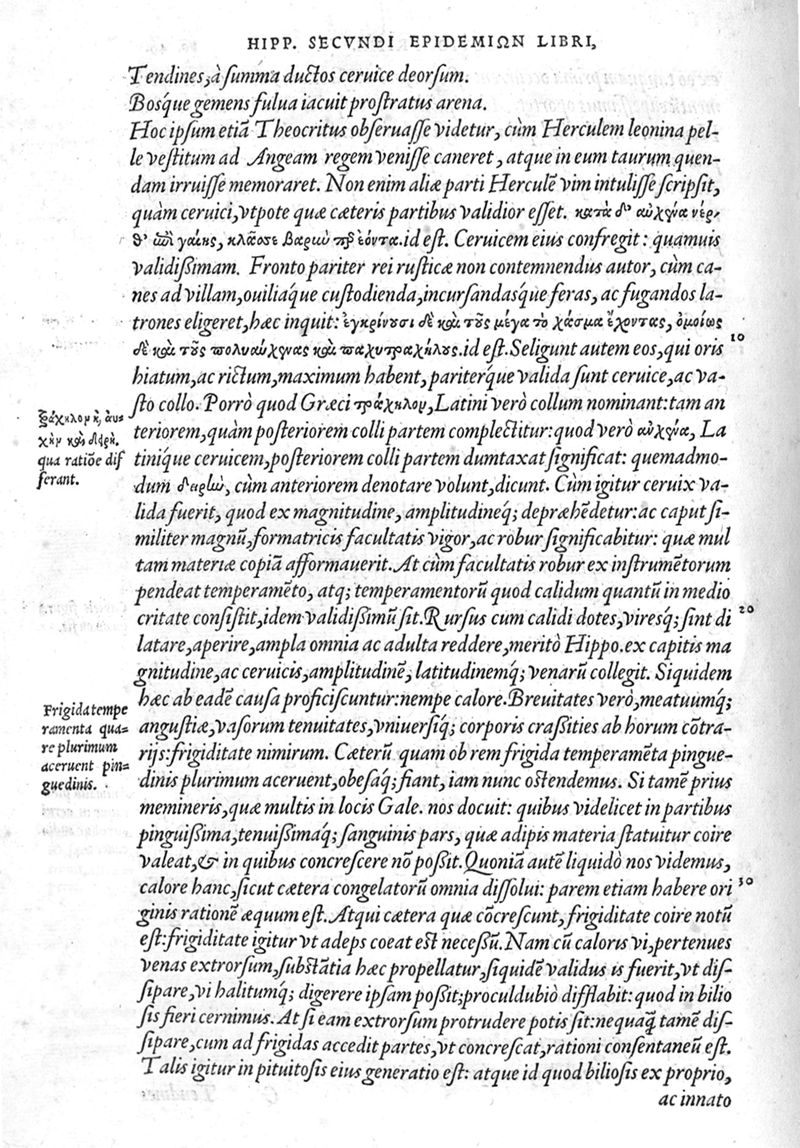 HIPP. SECVNDI EPIDEMIΩN LIBRI,
Tendines, à summa ductos ceruice deorsum.
Bosq́ue gemens fulua iacuit prostratus arena.
Hoc ipsum etiā Theocritus obseruasse videtur, cùm Herculem leonina pel-
le vestitum ad Angeam regem venisse caneret, atque in eum taurum quen-
dam irruisse memoraret. Non enim aliæ parti Herculē vim intulisse scripsit,
quàm ceruici, vtpote quæ cæteris partibus validior esset. κατὰ δ' αὐχένα νέρ-
θ' ἐπὶ γαίης, κλάσσε βαρὺν περ ἐόντα. id est. Ceruicem eius confregit: quamuis
validißimam. Fronto pariter rei rusticæ non contemnendus autor, cùm ca-
nes ad villam, ouiliáque custodienda, incursandasq́ue feras, ac fugandos la-
trones eligeret, hæc inquit: ἐγκρίνουσι δὲ καὶ τοὺς μέγα τὸ χάσμα ἔχοντας, ὁμοίως
δὲ καὶ τοὺς πολυαύχενας καὶ παχυτραχήλους. id est. Seligunt autem eos, qui oris
10
hiatum, ac rictum, maximum habent, pariterq́ue valida sunt ceruice, ac va-
sto collo. Porrò quod Græci τράχηλον, Latini verò collum nominant: tam an
teriorem, quàm posteriorem colli partem complectitur: quod verò αὐχένα, La
tiniq́ue ceruicem, posteriorem colli partem dumtaxat significat: quemadmo-
dum δερὴν, cùm anteriorem denotare volunt, dicunt. Cùm igitur ceruix va-
lida fuerit, quod ex magnitudine, amplitudineq́; depræhēdetur: ac caput si-
militer magnū, formatricis facultatis vigor, ac robur significabitur: quæ mul
tam materiæ copiā afformauerit. At cùm facultatis robur ex instrumētorum
pendeat temperamēto, atq; temperamentorū quod calidum quantū in medio
critate consistit, idem validißimū sit. Rursus cum calidi dotes, viresq́; sint di
20
latare, aperire, ampla omnia ac adulta reddere, meritò Hippo. ex capitis ma
gnitudine, ac ceruicis, amplitudinē, latitudinemq́; venarū collegit. Siquidem
hæc ab eadē causa proficiscuntur: nempe calore. Breuitates verò, meatuumq́;
angustiæ, vasorum tenuitates, vniuersiq́; corporis craßities ab horum cōtra-
rijs: frigiditate nimirum. Cæterū quam ob rem frigida temperamēta pingue-
dinis plurimum aceruent, obesaq́; fiant, iam nunc ostendemus. Si tamē prius
memineris, quæ multis in locis Gale. nos docuit: quibus videlicet in partibus
pinguißima, tenuißimaq́; sanguinis pars, quæ adipis materia statuitur coire
valeat, & in quibus concrescere nō poßit. Quoniā autē liquidò nos videmus,
calore hanc, sicut cætera congelatorū omnia dissolui: parem etiam habere ori
30
ginis rationē æquum est. Atqui cætera quæ cōcrescunt, frigiditate coire notū
est: frigiditate igitur vt adeps coeat est necessū. Nam cū caloris vi, pertenues
venas extrorsum, substātia hæc propellatur, siquidē validus is fuerit, vt dis-
sipare, vi halitumq́; digerere ipsam poßit; proculdubiò difflabit: quod in bilio
sis fieri cernimus. At si eam extrorsum protrudere potis sit: nequaq̄ tamē dis-
sipare, cum ad frigidas accedit partes, vt concrescat, rationi consentaneū est.
Talis igitur in pituitosis eius generatio est: atque id quod biliosis ex proprio,
ac innato
τράχηλον κ̀, αυ=
χὴν καὶ δέρη.
qua ratiōe dif
ferant.
Frigida tempe
ramenta qua=
re plurimum
aceruent pin=
guedinis.